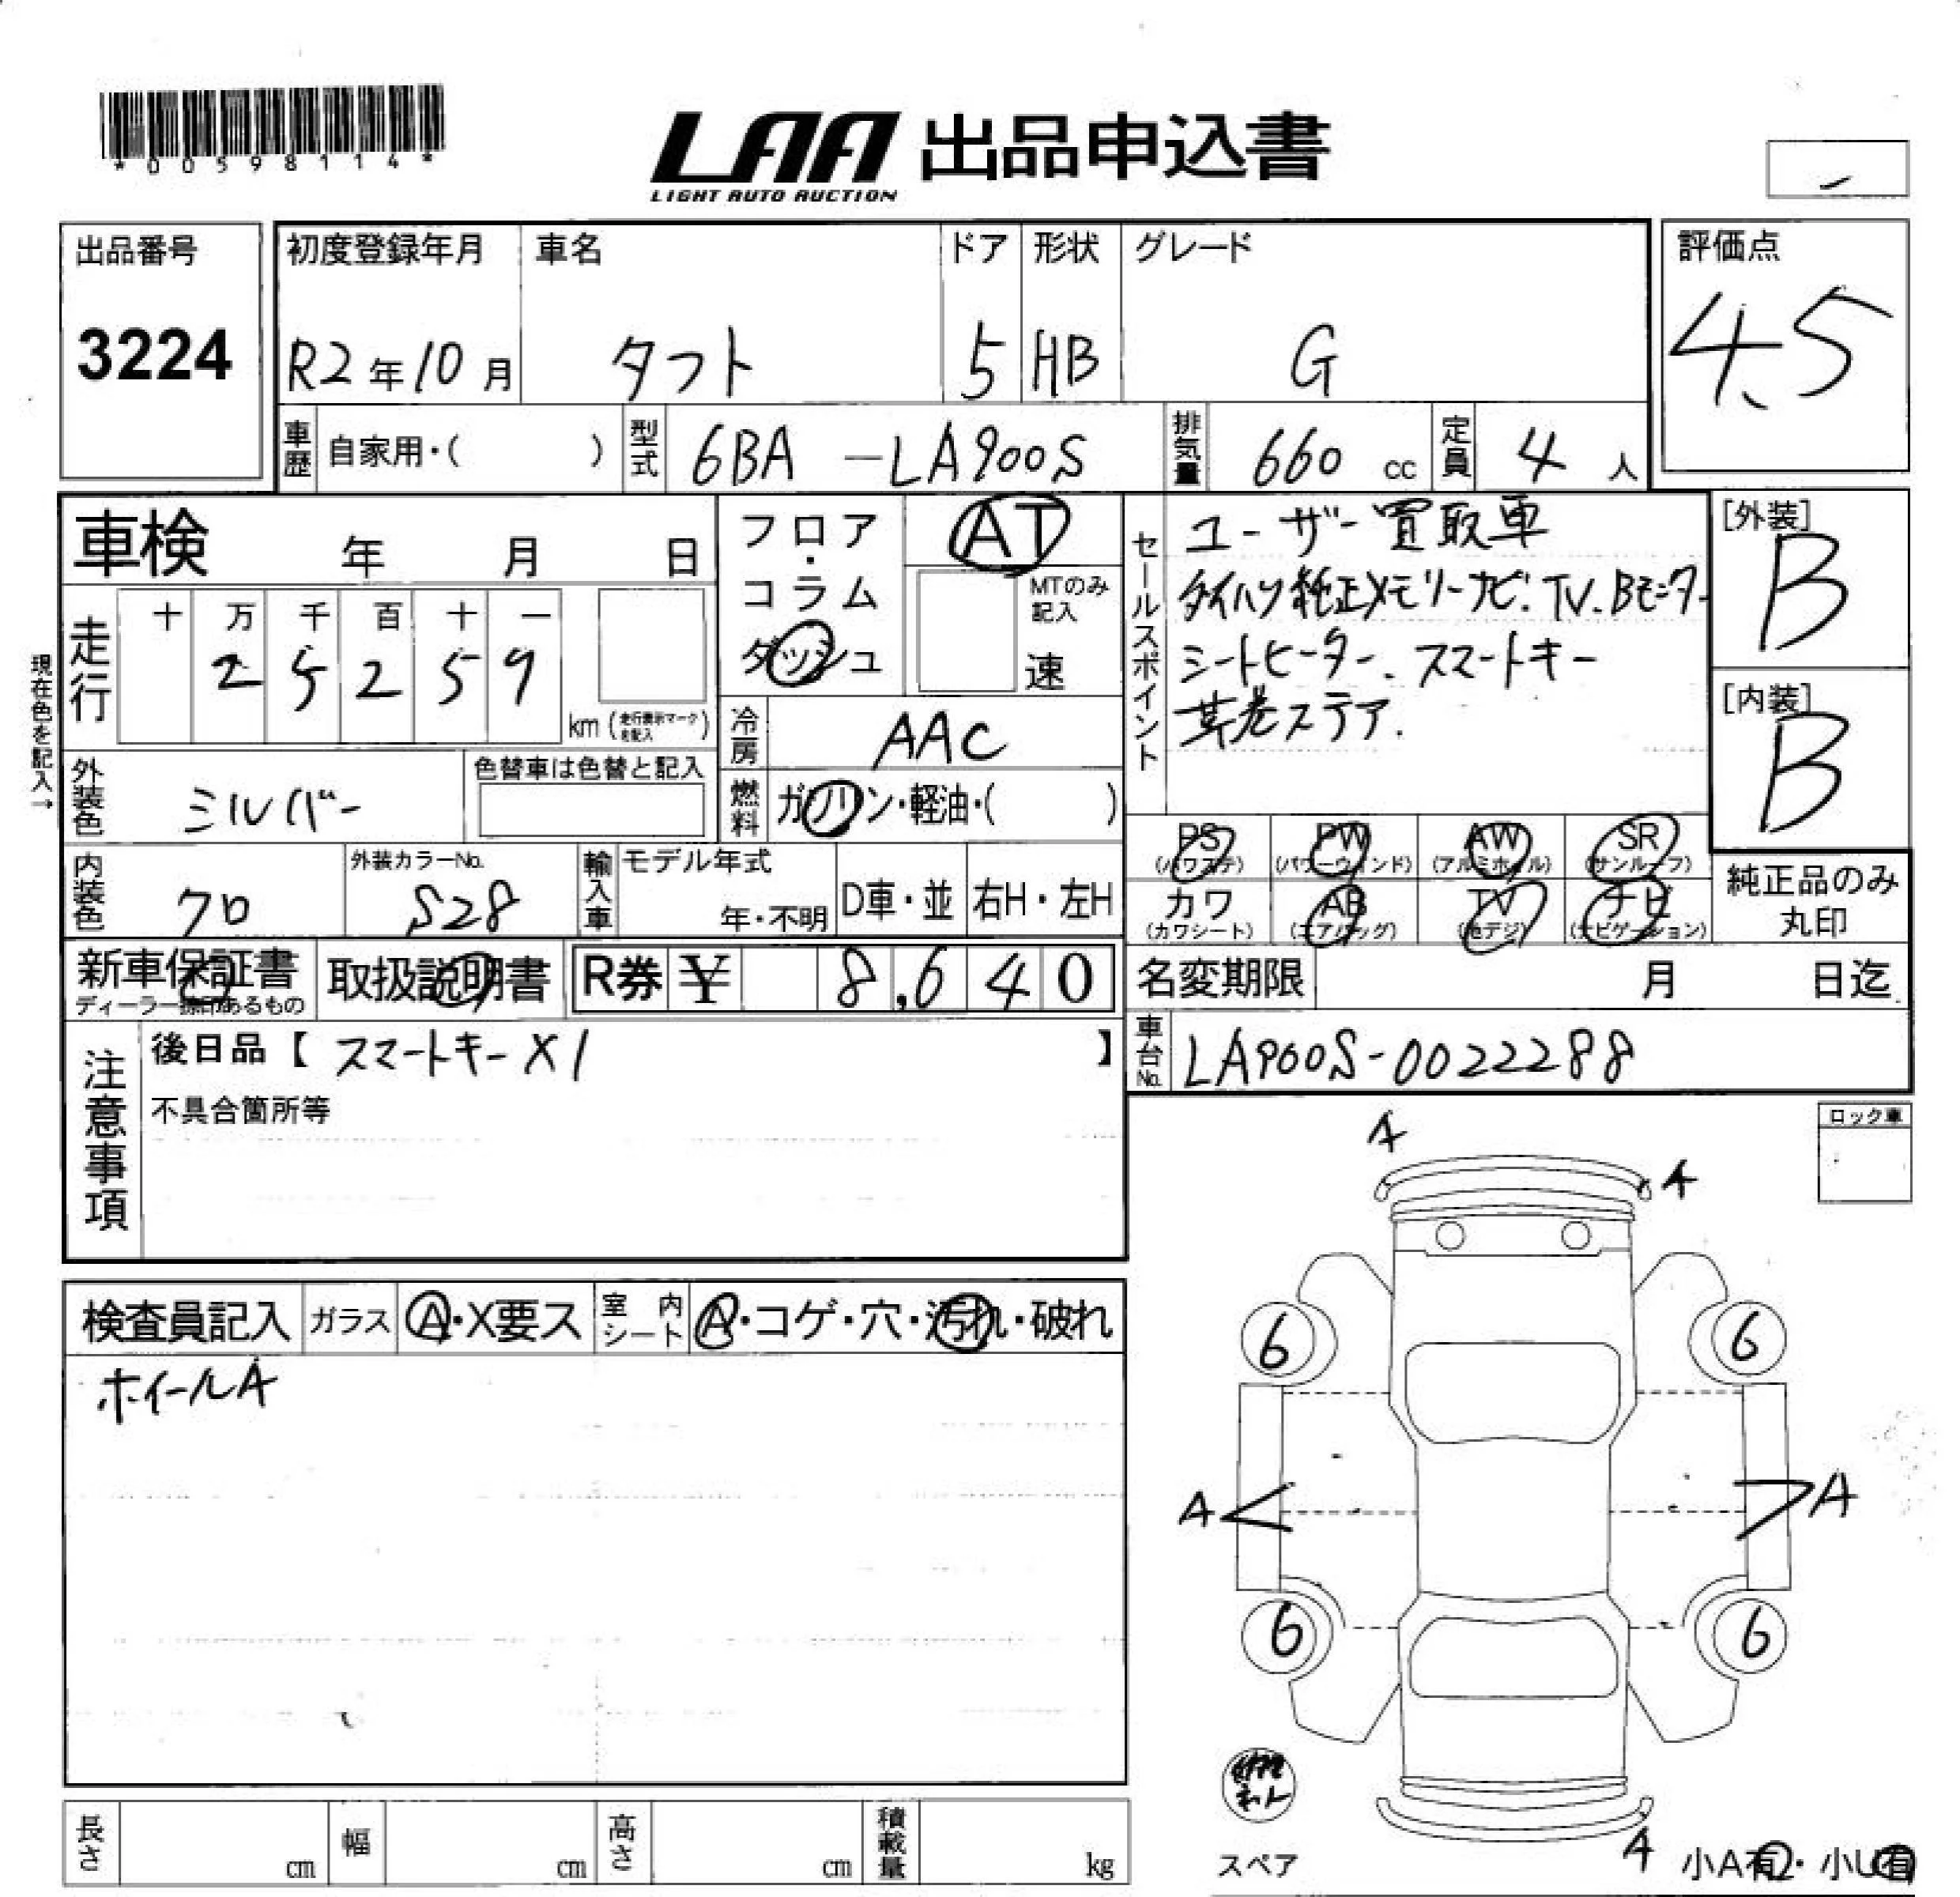 *00598114*
LAA 出品申込書
LIGHT AUTO AUCTION
出品番号
3224
初度登録年月
R2年10月
車名
タフト
ドア
5
形状
HB
グレード
G
評価点
4.5
車歴
自家用・( )
型式
6BA -LA900S
排気量
660 cc
定員
4人
車検 年 月 日
現在色を記入→
走行
十 万 千 百 十 一
2 5 2 5 9
km (走行表示マークを記入)
フロア・コラム
ダッシュ
AT
MTのみ記入
速
冷房
AAC
燃料
ガソリン・軽油・( )
外装色
シルバー
色替車は色替と記入
内装色
クロ
外装カラーNo.
S28
輸入車
モデル年式
年・不明
D車・並
右H・左H
セールスポイント
ユーザー買取車
ダイハツ純正メモリーナビ.TV.Bモニター
シートヒーター、スマートキー
革巻ステア.
[外装]
B
[内装]
B
PS
(パワステ)
PW
(パワーウィンド)
AW
(アルミホイル)
SR
(サンルーフ)
カワ
(カワシート)
AB
(エアバッグ)
TV
(地デジ)
ナビ
(ナビゲーション)
純正品のみ
丸印
新車保証書
ディーラー捺印あるもの
取扱説明書
R券 ¥ 8,640
名変期限 月 日迄
車台No.
LA900S-0022288
注意事項
後日品【 スマートキーX1 】
不具合箇所等
ロック車
A
A
検査員記入
ガラス
A・X要ス
室内シート
A・コゲ・穴・汚れ・破れ
ホイールA
6
6
A
A
6
6
スペア
A
小A有・小U有
長さ cm
幅 cm
高さ cm
積載量 kg